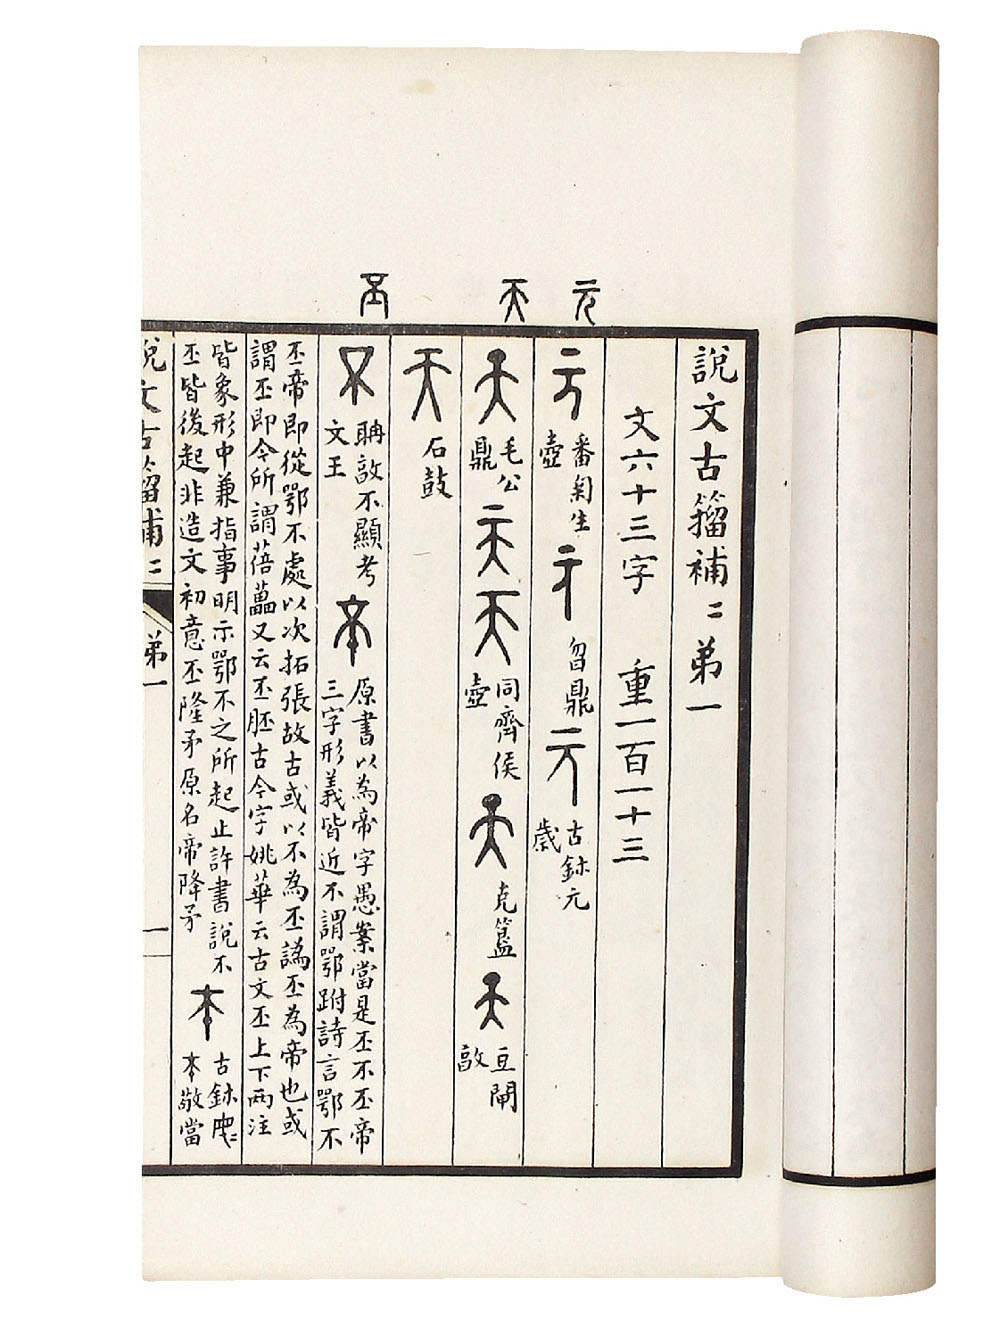 元 天 不
說文古籀補二弟一
文六十三字 重一百一十三
元 番匊生壺 元 曶鼎 元 古鉨元歲
天 毛公鼎 天 天 同齊侯壺 天 克簋 天 豆閉敦
天 石鼓
不 聃敦不顯考文王 不 原書以為帝字愚案當是丕不丕帝
三字形義皆近不謂鄂跗詩言鄂不
丕帝即從鄂不處以次拓張故古或以不為丕譌丕為帝也或
謂丕即今所謂蓓藟又云丕胚古今字姚華云古文丕上下兩注
皆象形中兼指事明示鄂不之所起止許書說不
丕皆後起非造文初意丕隆矛原名帝降矛 不 古鉨
不敬當
說文古籀補二 弟一 一